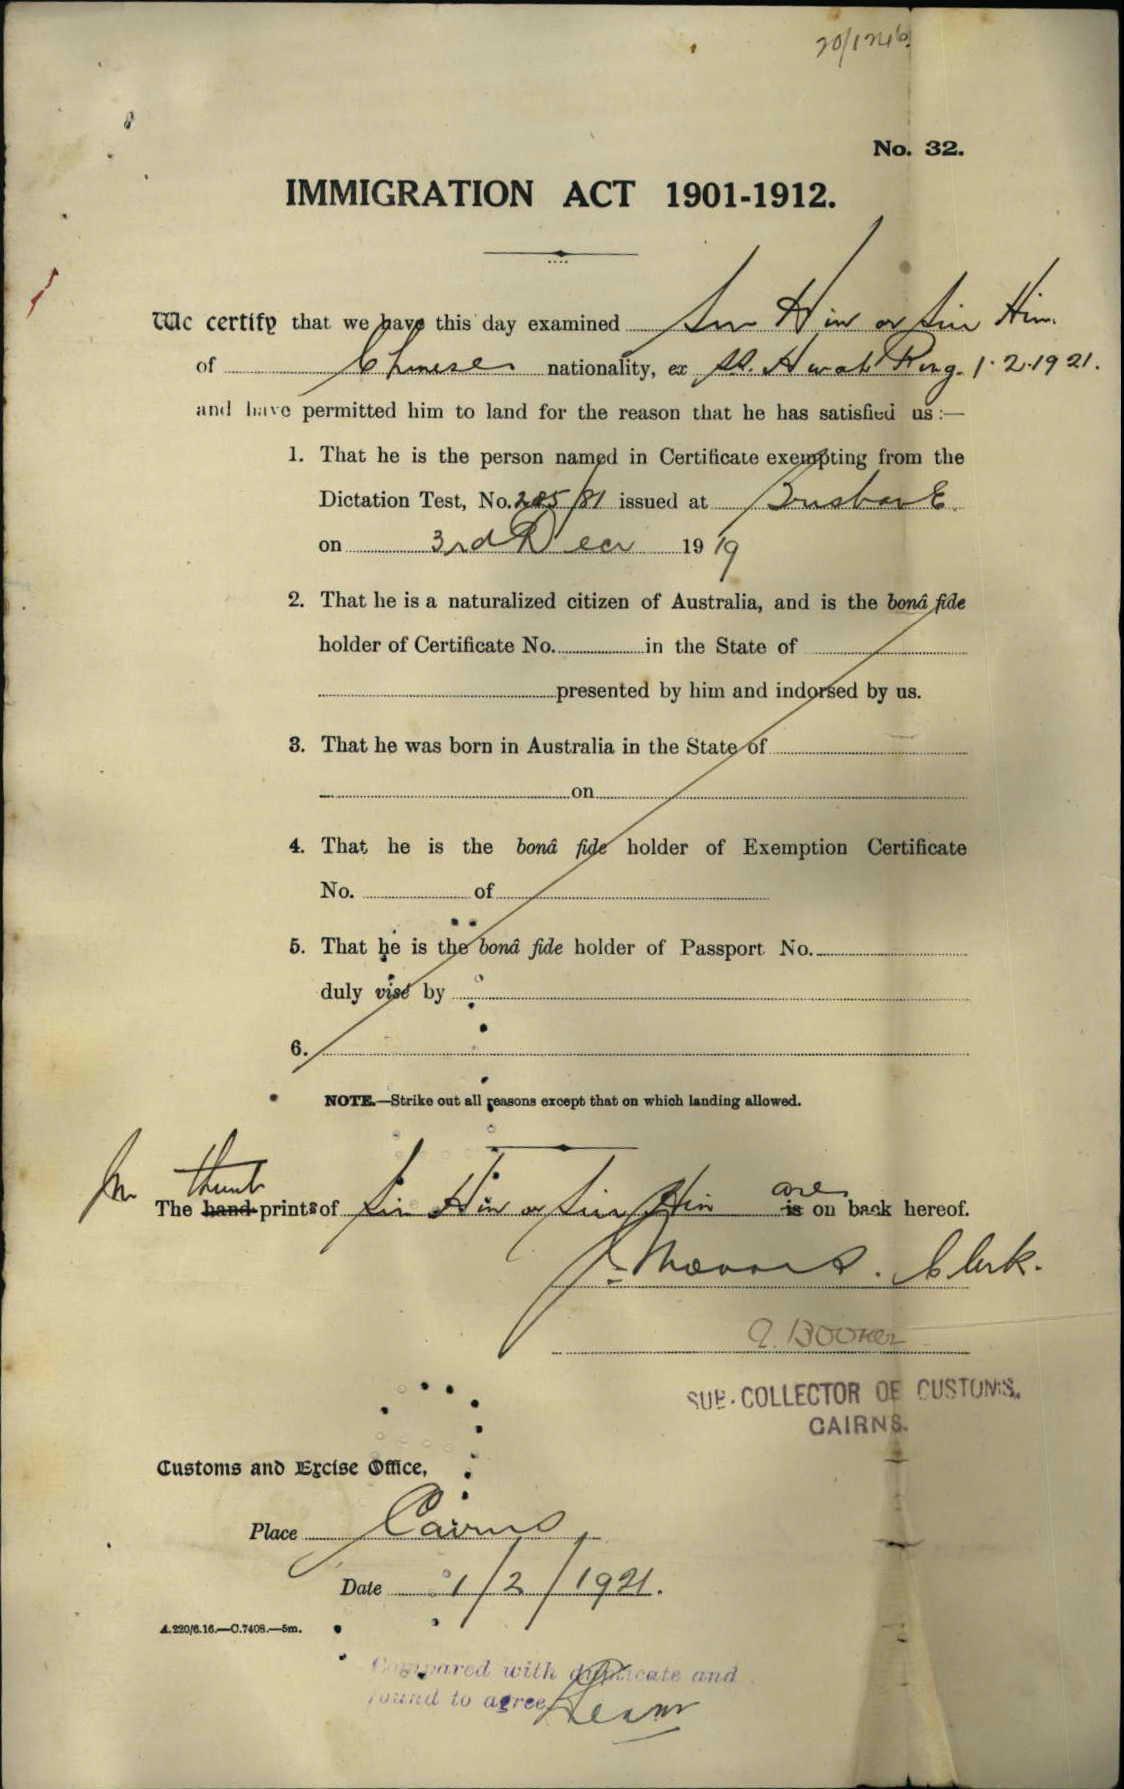 No. 32.
IMMIGRATION ACT 1901-1912.
We certify that we have this day examined Sin Hin or Sin Hin.
of Chinese nationality, ex SS. Hwah Ping. 1.2.1921.
and have permitted him to land for the reason that he has satisfied us :—
1. That he is the person named in Certificate exempting from the
Dictation Test, No. 285/81 issued at Brisbane
on 3rd Decr 1919
2. That he is a naturalized citizen of Australia, and is the bonâ fide
holder of Certificate No. in the State of
presented by him and indorsed by us.
3. That he was born in Australia in the State of
on
4. That he is the bonâ fide holder of Exemption Certificate
No. of
5. That he is the bonâ fide holder of Passport No.
duly visé by
6.
NOTE.—Strike out all reasons except that on which landing allowed.
thumb are
The hand prints of Sin Hin or Sin Hin is on back hereof.
Clerk.
SUB-COLLECTOR OF CUSTOMS,
CAIRNS.
Customs and Excise Office,
Place Cairns
Date 1/2/1921.
A.220/6.16.—C.7408.—5m.
Compared with duplicate and
found to agree